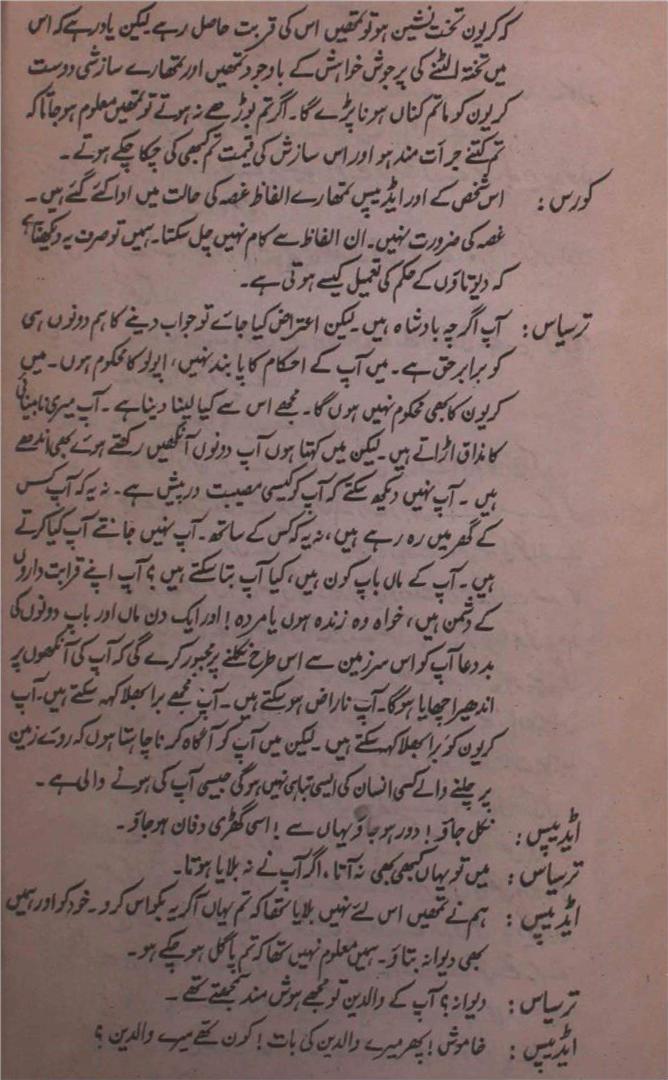 کہ کریون تخت نشین ہو تو تمھیں اس کی قربت حاصل رہے لیکن یاد رہے کہ اس
میں تختہ الٹنے کی پرجوش خواہش کے باوجود تمھیں اور تمھارے سازشی دوست
کریون کو ماتم کناں ہونا پڑے گا۔ اگر تم بوڑھے نہ ہوتے تو تمھیں معلوم ہو جاتا کہ
تم کتنے جرأت مند ہو اور اس سازش کی قیمت تم کبھی کی چکا چکے ہوتے۔
کورس: اس شخص کے اور ایڈیپس تمھارے الفاظ غصہ کی حالت میں ادا کئے گئے ہیں۔
غصہ کی ضرورت نہیں۔ ان الفاظ سے کام نہیں چل سکتا۔ ہمیں تو صرف یہ دیکھنا ہے
کہ دیوتاؤں کے حکم کی تعمیل کیسے ہوتی ہے۔
ترسیاس: آپ اگرچہ بادشاہ ہیں۔ لیکن اعتراض کیا جائے تو جواب دینے کا ہم دونوں ہی
کو برابر حق ہے۔ میں آپ کے احکام کا پابند نہیں، اپولو کا محکوم ہوں۔ میں
کریون کا بھی محکوم نہیں ہوں گا۔ مجھے اس سے کیا لینا دینا ہے۔ آپ میری نابینائی
کا مذاق اڑاتے ہیں۔ لیکن میں کہتا ہوں آپ دونوں آنکھیں رکھتے ہوئے بھی اندھے
ہیں۔ آپ نہیں دیکھ سکتے کہ آپ کو کیسی مصیبت درپیش ہے۔ نہ یہ کہ آپ کس
کے گھر میں رہ رہے ہیں، نہ یہ کہ کس کے ساتھ۔ آپ نہیں جانتے آپ کیا کرتے
ہیں۔ آپ کے ماں باپ کون ہیں، کیا آپ بتا سکتے ہیں؟ آپ اپنے قرابت داروں
کے دشمن ہیں، خواہ وہ زندہ ہوں یا مردہ! اور ایک دن ماں اور باپ دونوں کی
بددعا آپ کو اس سرزمین سے اس طرح نکلنے پر مجبور کرے گی کہ آپ کی آنکھوں پر
اندھیرا چھایا ہوگا۔ آپ ناراض ہو سکتے ہیں۔ آپ مجھے برا بھلا کہہ سکتے ہیں۔ آپ
کریون کو برا بھلا کہہ سکتے ہیں۔ لیکن میں آپ کو آگاہ کرنا چاہتا ہوں کہ روئے زمین
پر چلنے والے کسی انسان کی ایسی تباہی نہیں ہوگی جیسی آپ کی ہونے والی ہے۔
ایڈیپس: نکل جاؤ! دور ہو جاؤ یہاں سے! اسی گھڑی دفان ہو جاؤ۔
ترسیاس: میں تو یہاں کبھی بھی نہ آتا، اگر آپ نے نہ بلایا ہوتا۔
ایڈیپس: ہم نے تمھیں اس لئے نہیں بلایا تھا کہ تم یہاں آکر یہ بکواس کرو۔ خود کو اور ہمیں
بھی دیوانہ بتاؤ۔ ہمیں معلوم نہیں تھا کہ تم پاگل ہو چکے ہو۔
ترسیاس: دیوانہ؟ آپ کے والدین تو مجھے ہوش مند سمجھتے تھے۔
ایڈیپس: خاموش! پھر میرے والدین کی بات! کون تھے میرے والدین؟